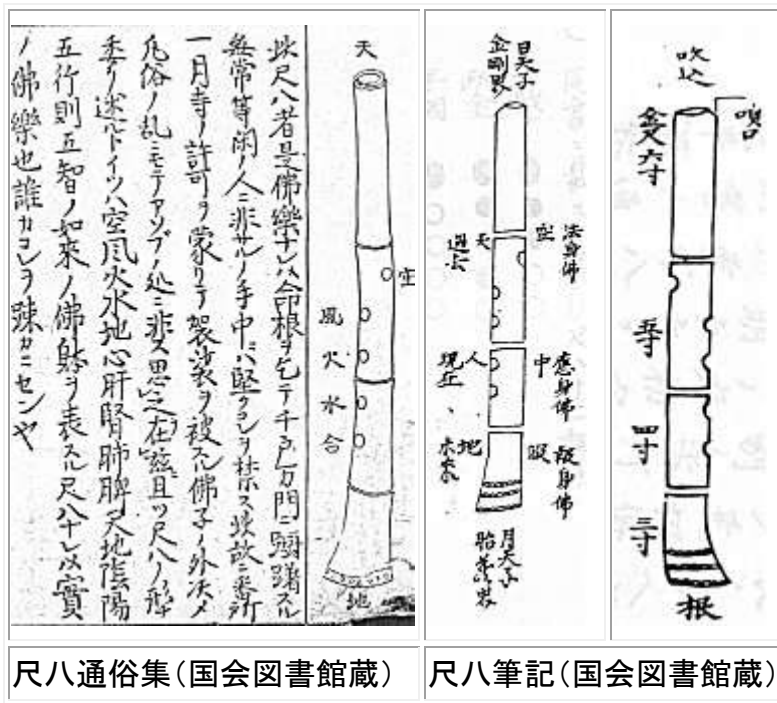 此尺八者是佛樂ナレハ命根ヲ乞テ千戸万門ニ躑躅スル
無常等閑ノ人ニ非サルノ手中ハ堅クコレヲ禁ス此故ニ番所
一月寺ノ許可ヲ蒙リテ袈裟ヲ被スル佛子ノ外决メ
凡俗ノ乱ニモテアソブノ処ニ非ス思之在茲且ツ尺八ノ形
委ク述ルトイツハ空風火水地心肝腎肺脾天地陰陽
五行則五智ノ如来ノ佛躰ヲ表スル尺八ナレハ實
ノ佛樂也誰カコレヲ疎カニセンヤ
天
空
風
火
水
合
地
日天子
金剛界
法身佛
空
天
過去
應身佛
中
人
現在
報身佛
地
未来
月天子
胎蔵界
吹込
唄口
六寸
四寸
三寸
根
尺八通俗集(国会図書館蔵)
尺八筆記(国会図書館蔵)